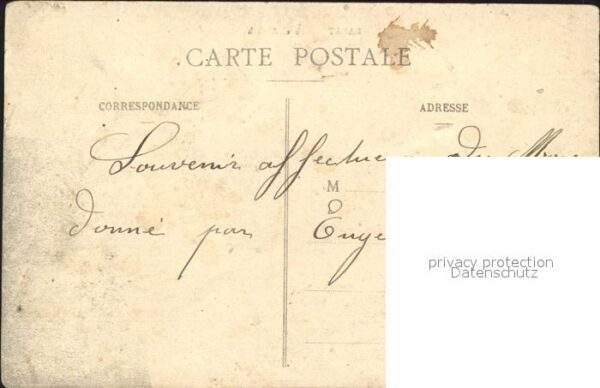 CARTE POSTALE
CORRESPONDANCE
ADRESSE
Souvenir affectueux du
M
donné par
privacy protection
Datenschutz